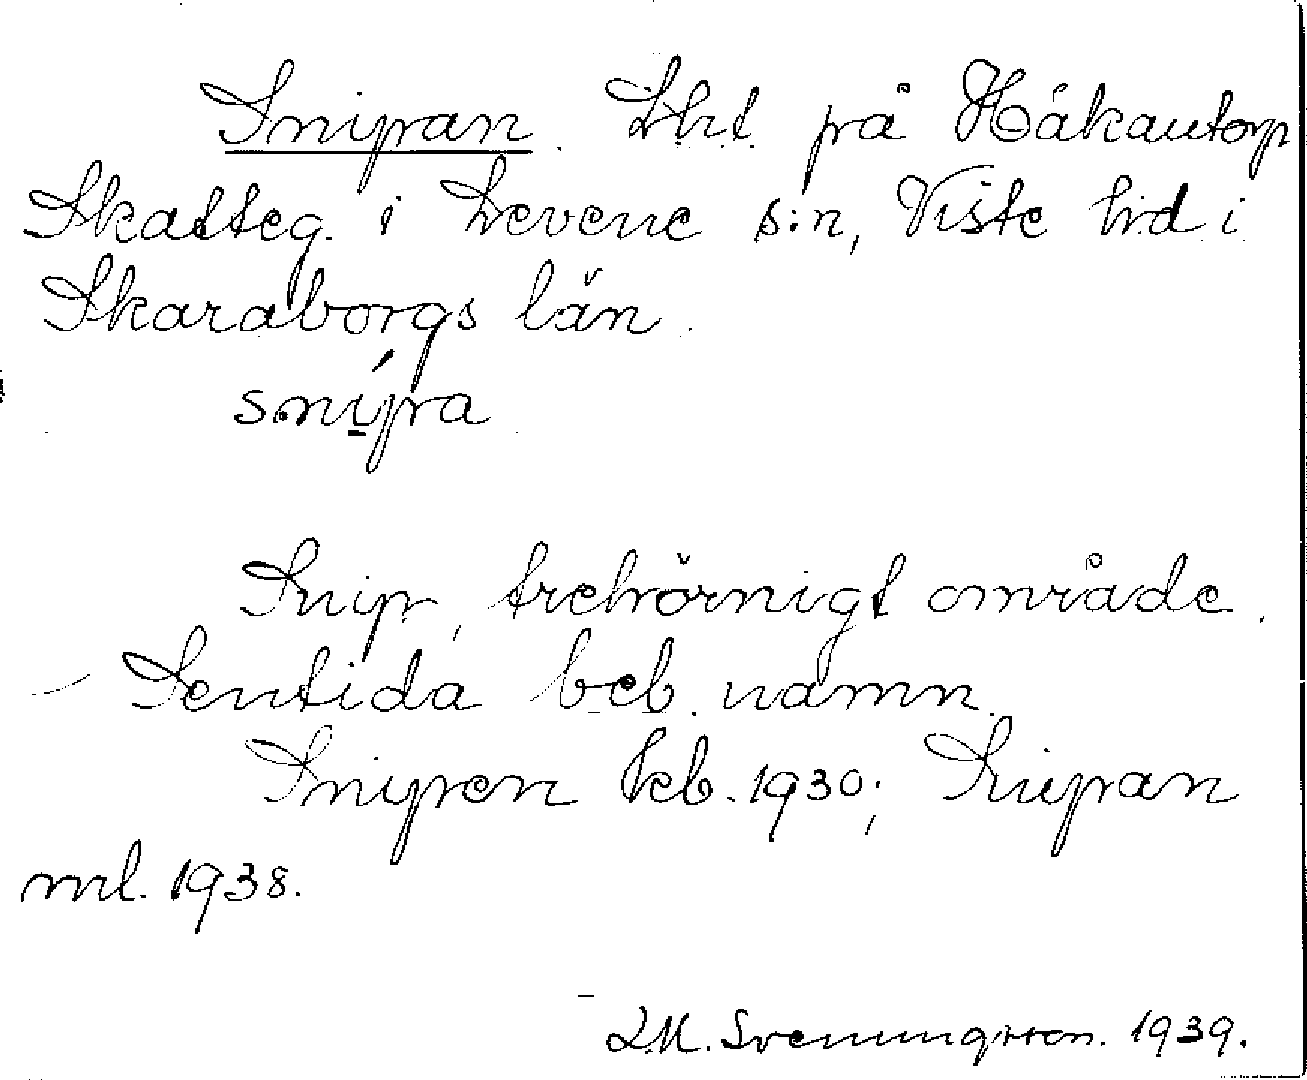 Snipan. Lht på Håkantorp
Skatteg. i Levene s:n, Viste hd i
Skaraborgs län.
snípa
Snip, trehörnigt område.
– Sentida beb. namn.
Snipen kb. 1930; Snipan
ml. 1938.
L.M. Svenungsson. 1939.